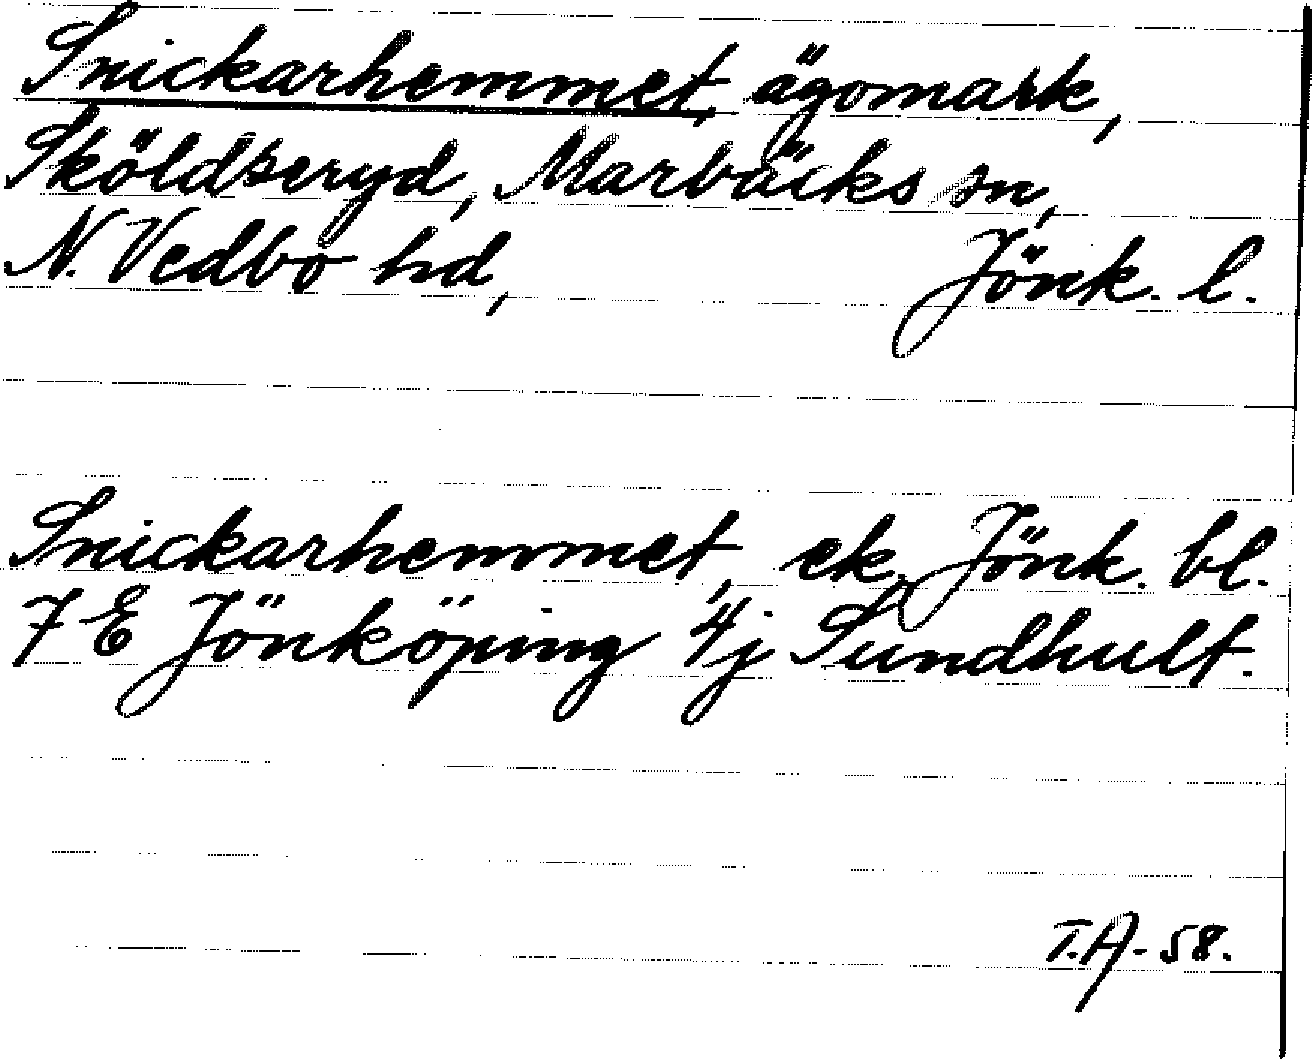 Snickarhemmet, ägomark,
Sköldseryd, Marbäcks sn,
N. Vedbo hd, Jönk. l.
Snickarhemmet, ek, Jönk. bl.
7 E Jönköping 4j Sundhult.
T.A-58.